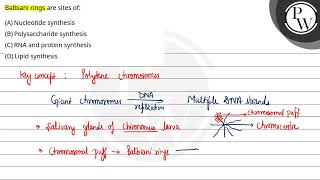 Balbiani rings are sites of:
(A) Nucleotide synthesis
(B) Polysaccharide synthesis
(C) RNA and protein synthesis
(D) Lipid synthesis
PW
Key concept : Polytene chromosomes
Giant chromosomes DNA replication Multiple DNA strands
→ Salivary glands of Chironomus larva
chromosomal puff
chromocentre
→ Chromosomal puff → Balbiani rings